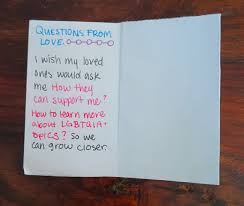 QUESTIONS FROM
LOVE
I wish my loved
ones would ask
me How they
can support me?
How to learn more
about LGBTQIA+
topics? So we
can grow closer.